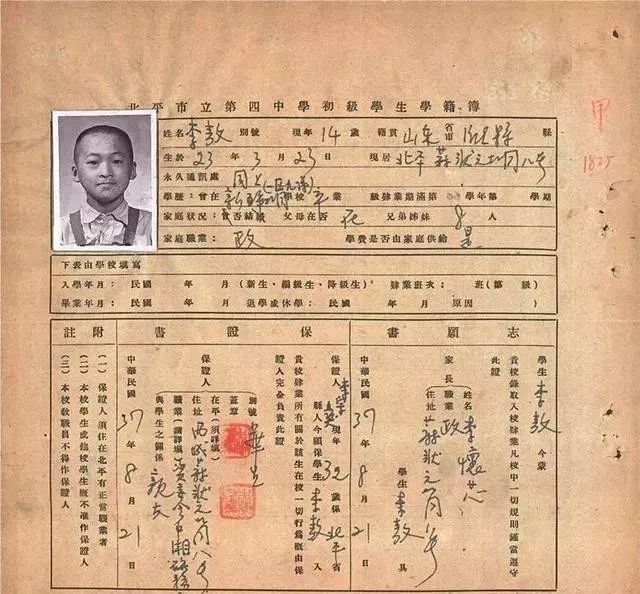 北平市立第四中學初級學生學籍簿
甲
1825
姓名 李敖 別號 現年 14 歲 籍貫 山東 省市 縣
生於 23 年 3 月 23 日 現居 北平
永久通訊處 同上
學歷：曾在 學校 業 級肄業期滿第 學年第 學期
家庭狀況：曾否結婚 父母在否 在 兄弟姊妹 8 人
家庭職業：政 學費是否由家庭供給 是
下表由學校填寫
入學年月：民國 年 月 （新生・編級生・降級生） 肄業班次： 班（第 級）
畢業年月：民國 年 月 退學或休學：民國 年 月 原因
志願書
學生 李敖 今蒙
貴校錄取入校肄業凡校中一切規則謹當遵守
此證
家長
姓名 李
職業 政
住址
學生 李敖 具
中華民國 37 年 8 月 21 日
保證書
保證人 現年 32 歲係 北平 省
縣人今願保學生 李敖 入
貴校肄業所有關於該生在校一切行為概由保
證人完全負責此證
保證人
別號
蓋章
在平（須詳填）
住址
職業（請詳填）
與學生之關係 親友
中華民國 37 年 8 月 21 日
附註
（一）保證人須住在北平有正當職業者
（二）本校學生或他校學生概不准作保證人
（三）本校教職員不得作保證人